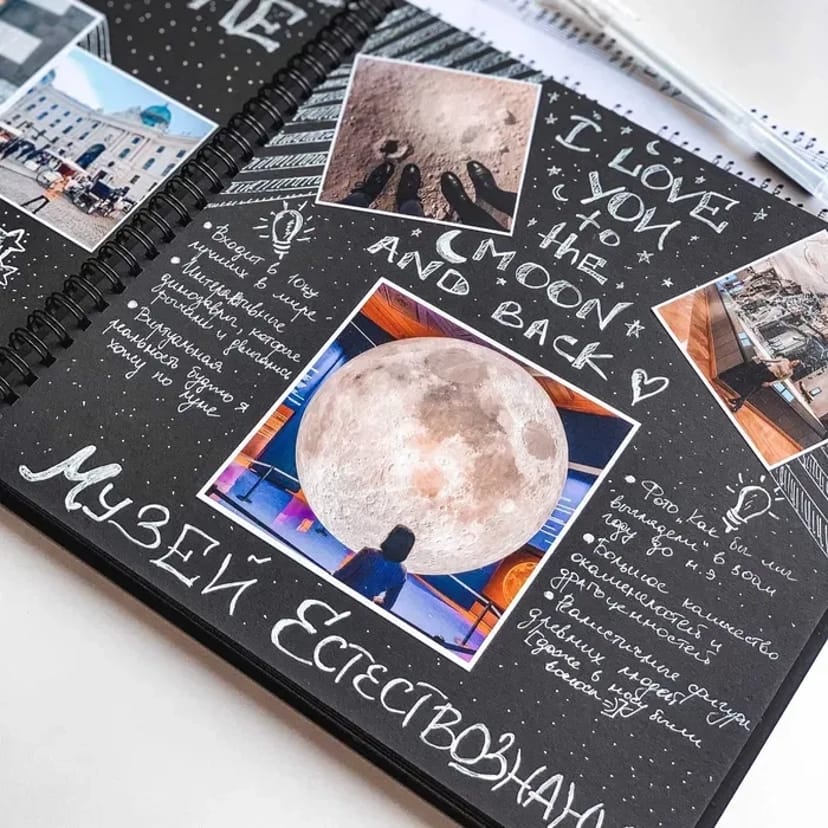 I LOVE
YOU
to
the
MOON
AND BACK
• Входит в 10ку
лучших в мире
• Интерактивные
динозавры, которые
рычали и двигались
• Виртуальная
реальность будто я
хожу по луне
• Фото „Как бы мы
выглядели" в
году до н.э
• Большое количество
окаменелостей и
драгоценностей
• Реалистичные фигуры
древних людей
(даже в носу были
волосы =))
МУЗЕЙ ЕСТЕСТВОЗНАН